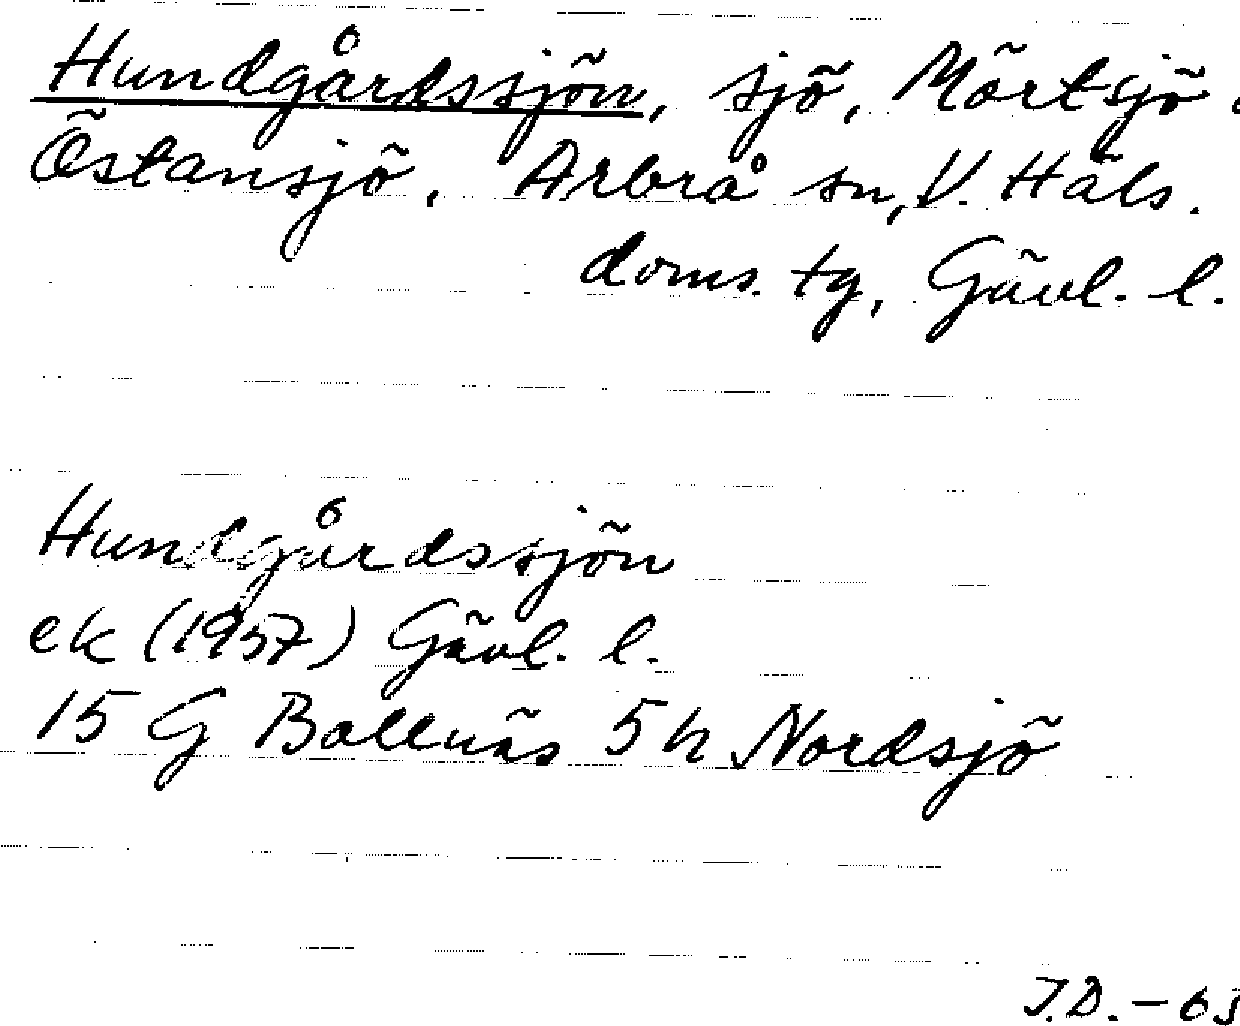 Hundgårdssjön, sjö, Mörtsjö.
Östansjö, Arbrå sn, V. Häls.
doms. tg, Gävl. l.
Hundgårdssjön
ek (1957) Gävl. l.
15 G Bollnäs 5 h Nordsjö
J.D. - 63